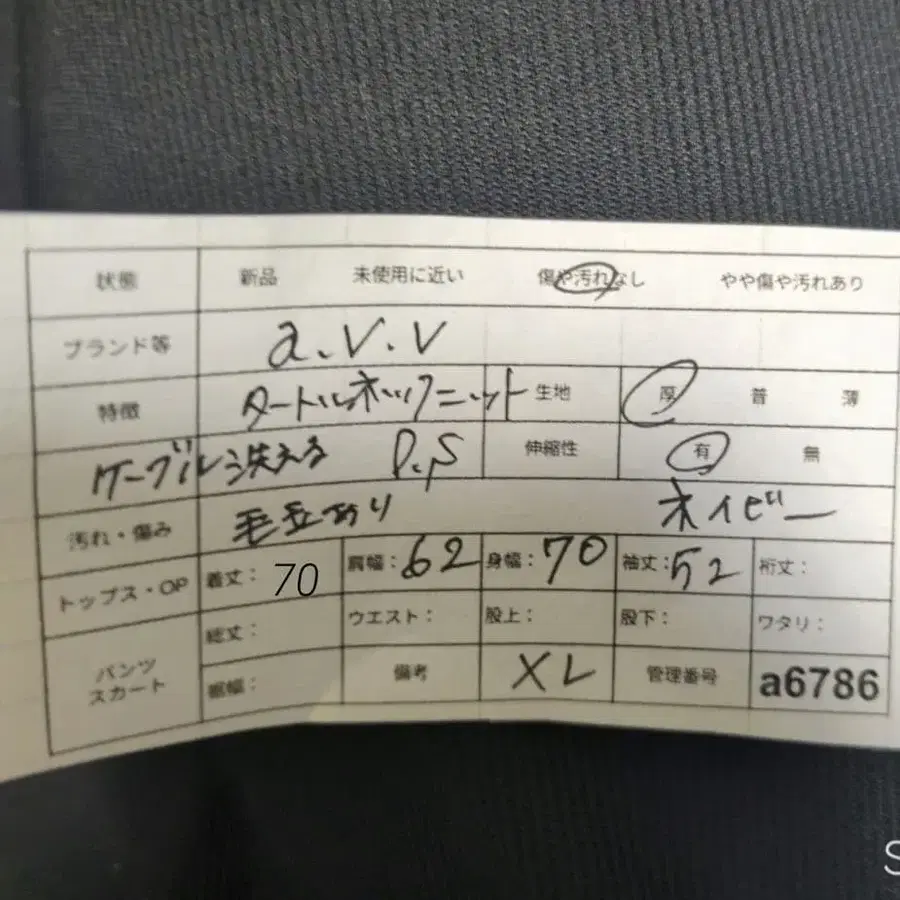 状態 新品 未使用に近い 傷や汚れなし やや傷や汚れあり
ブランド等 a.v.v
特徴 タートルネックニット 生地 厚 普 薄
ケーブル 洗える 伸縮性 有 無
汚れ・傷み 毛玉あり ネイビー
トップス・OP 着丈: 70 肩幅: 62 身幅: 70 袖丈: 52 裄丈:
パンツ スカート 総丈: ウエスト: 股上: 股下: ワタリ:
裾幅: 備考 XL 管理番号 a6786
S